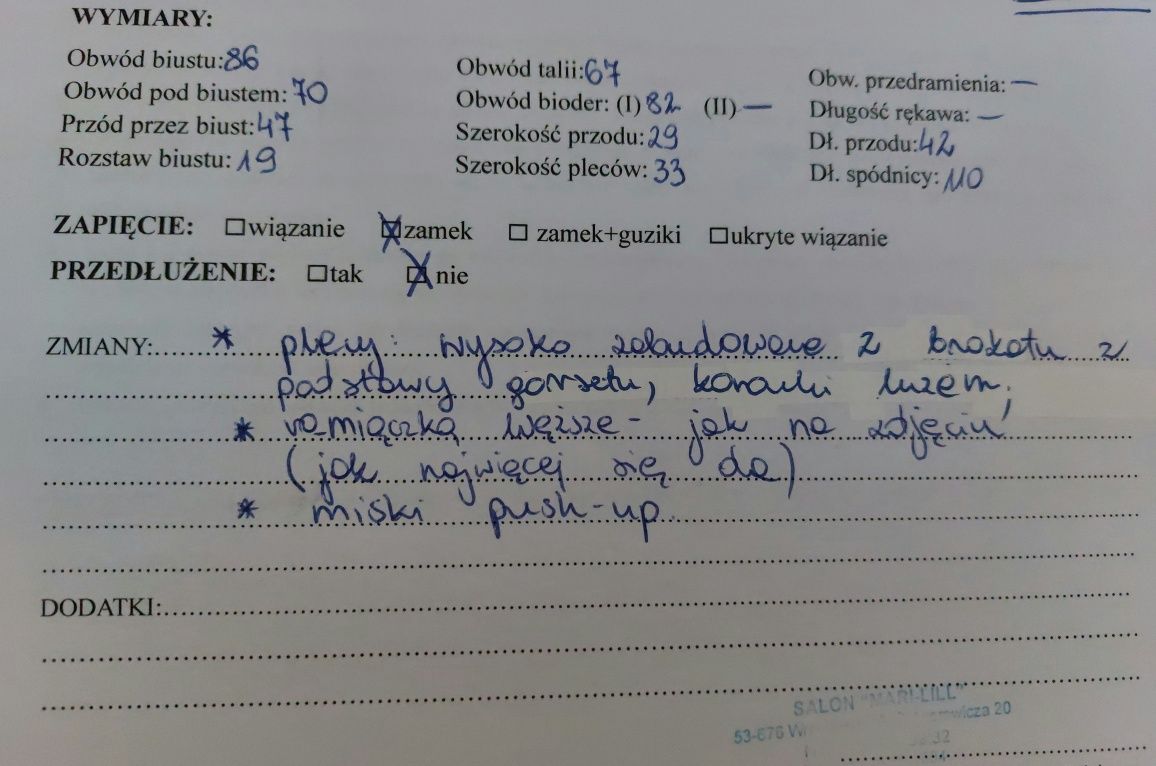 WYMIARY:
Obwód biustu: 86 Obwód talii: 67 Obw. przedramienia: —
Obwód pod biustem: 70 Obwód bioder: (I) 82 (II) — Długość rękawa: —
Przód przez biust: 47 Szerokość przodu: 29 Dł. przodu: 42
Rozstaw biustu: 19 Szerokość pleców: 33 Dł. spódnicy: 110
ZAPIĘCIE: ☐wiązanie ☒zamek ☐ zamek+guziki ☐ukryte wiązanie
PRZEDŁUŻENIE: ☐tak ☒nie
ZMIANY: * plecy: wysoko zabudowane z brokatu z
podstawy gorsetu, koraliki luzem,
* ramiączka węższe - jak na zdjęciu
(jak najwięcej się da)
* miski push-up.
DODATKI:
SALON "MARI-LILL"
53-676 20